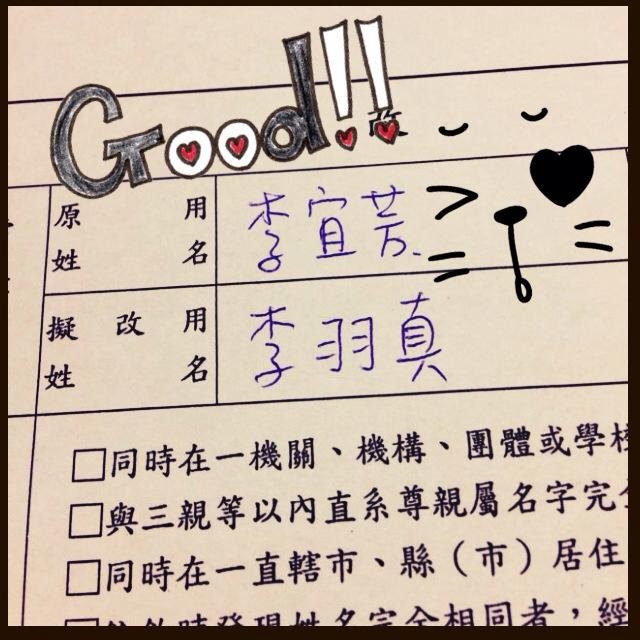 Good!!
原用姓名 李宜芳
擬改用姓名 李羽真
□同時在一機關、機構、團體或學校
□與三親等以內直系尊親屬名字完全
□同時在一直轄市、縣（市）居住
時發現姓名完全相同者，經